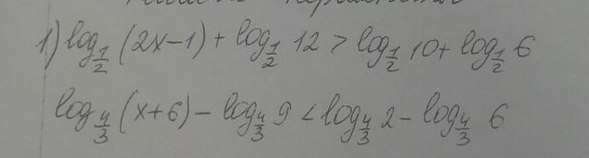 1) log_{1/2} (2x-1) + log_{1/2} 12 > log_{1/2} 10 + log_{1/2} 6
log_{4/3} (x+6) - log_{4/3} 9 < log_{4/3} 2 - log_{4/3} 6